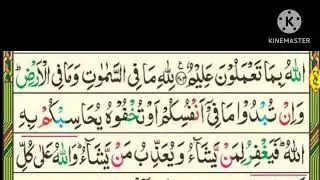 KINEMASTER
اللّٰهُ بِمَا تَعْمَلُوْنَ عَلِیْمٌ ﴿۲۸۳﴾ لِلّٰهِ مَا فِی السَّمٰوٰتِ وَمَا فِی الْاَرْضِ ؕ
وَاِنْ تُبْدُوْا مَا فِیْۤ اَنْفُسِكُمْ اَوْ تُخْفُوْهُ یُحَاسِبْكُمْ بِهِ
اللّٰهُ ؕ فَیَغْفِرُ لِمَنْ یَّشَآءُ وَیُعَذِّبُ مَنْ یَّشَآءُ ؕ وَاللّٰهُ عَلٰی كُلِّ